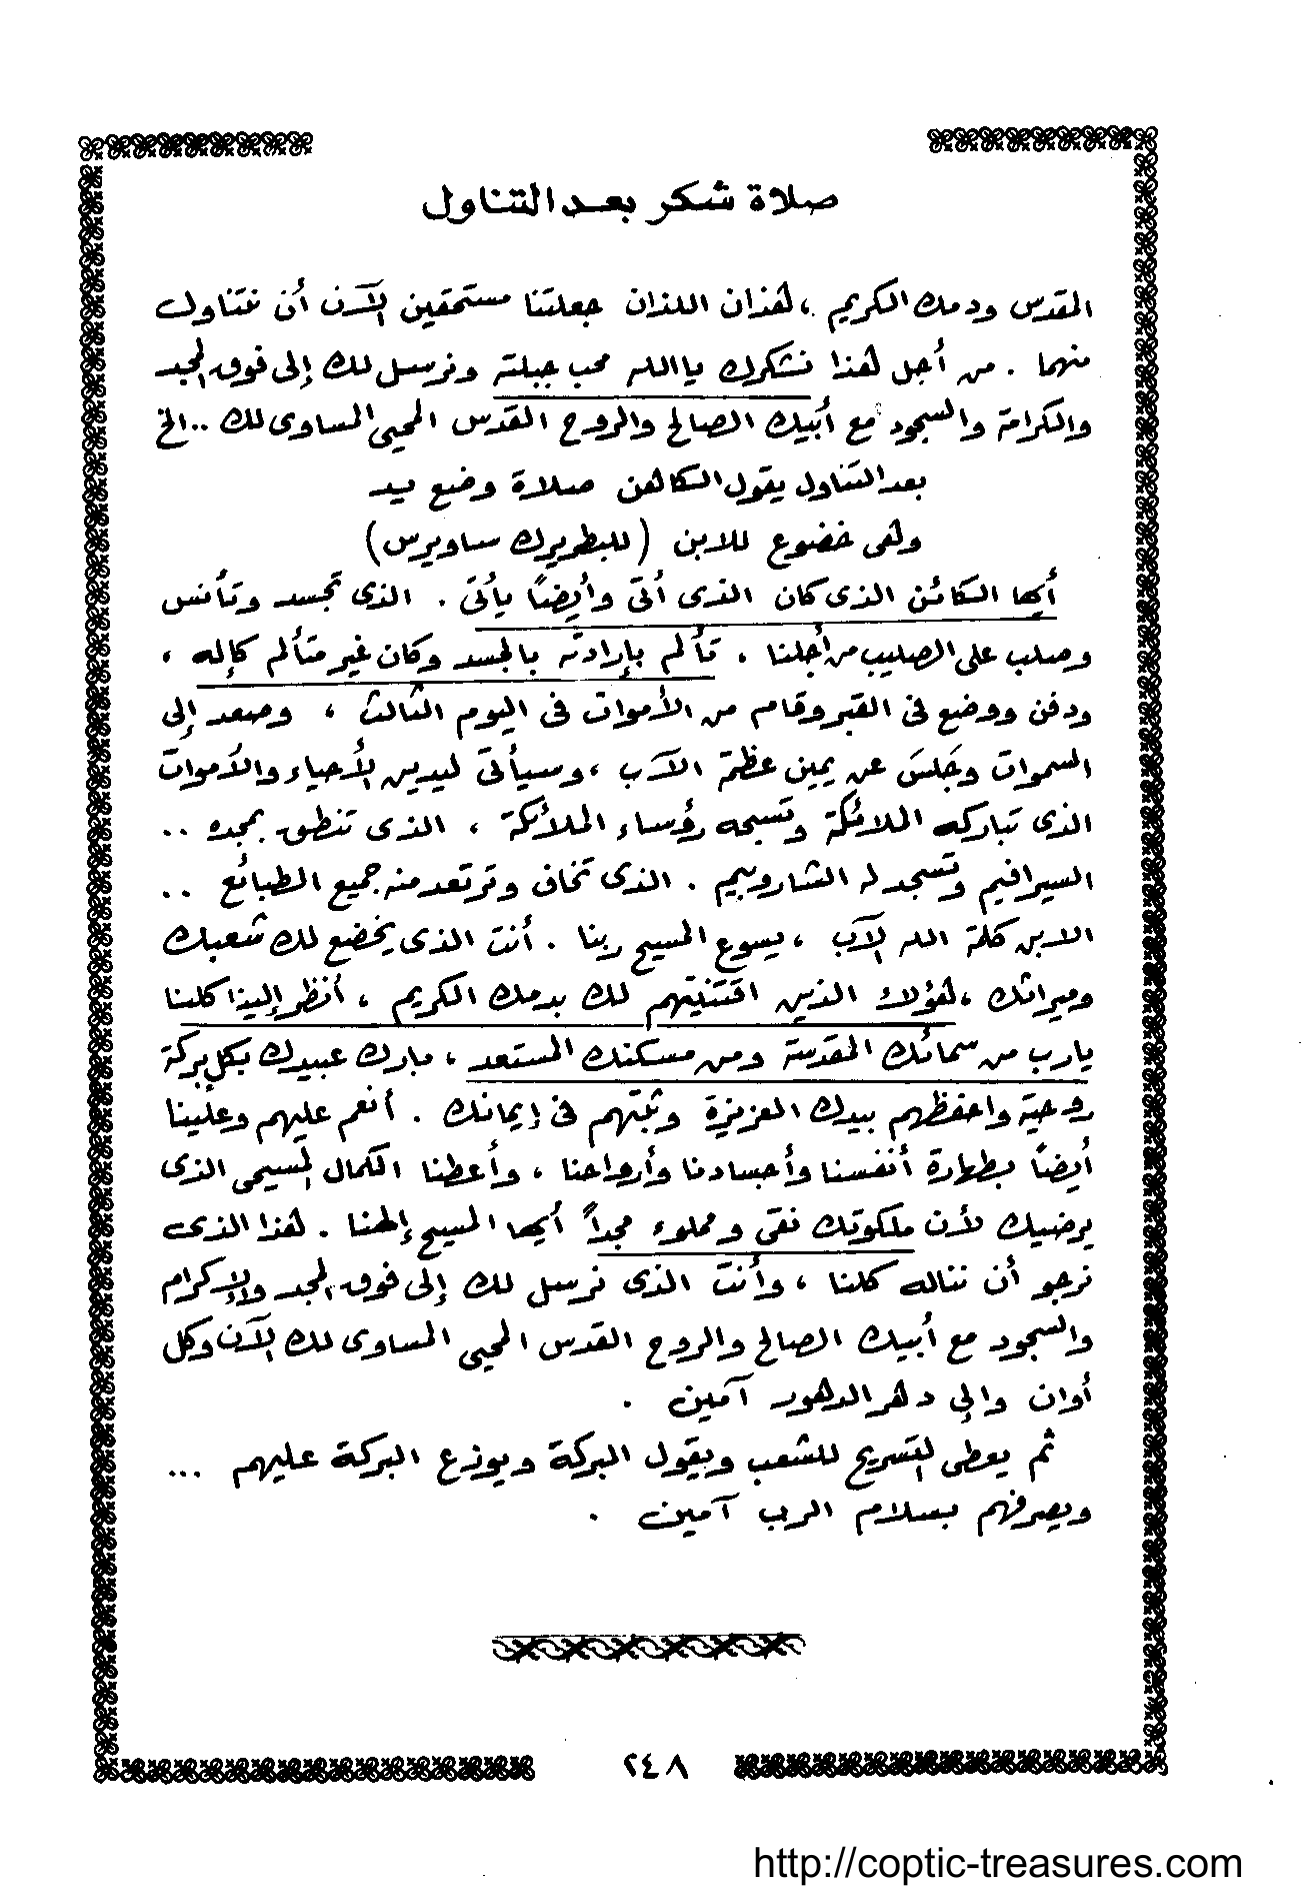 صلاة شكر بعد التناول
المقدس ودمك الكريم ، هذان اللذان جعلتنا مستحقين الآن أن نتناول
منهما . من أجل هذا نشكرك يا الله محب جبلته ونرسل لك إلى فوق المجد
والكرامة والسجود مع أبيك الصالح والروح القدس المحيى المساوى لك ..الخ
بعد التناول يقول الكاهن صلاة وضع يد
وهى خضوع للابن (للبطريرك ساويرس)
أيها الكائن الذى كان الذى أتى وأيضاً يأتى . الذى تجسد وتأنس
وصلب على الصليب من أجلنا ، تألم بإرادته بالجسد وكان غير متألم كإله ،
ودفن ووضع فى القبر وقام من الأموات فى اليوم الثالث ، وصعد إلى
السموات وجَلسَ عن يمين عظمة الآب ، وسيأتى ليدين الأحياء والأموات
الذى تباركه الملائكة وتسبحه رؤساء الملائكة ، الذى تنطق بمجده ..
السيرافيم وتسجد له الشاروبيم . الذى تخاف وترتعد منه جميع الطبائع ..
الابن كلمة الله الآب ، يسوع المسيح ربنا . أنت الذى يخضع لك شعبك
وميراثك ، هؤلاء الذين اقتنيتهم لك بدمك الكريم ، أنظر إلينا كلنا
يارب من سمائك المقدسة ومن مسكنك المستعد ، بارك عبيدك بكل بركة
روحية واحفظهم بيدك العزيزة وثبتهم فى إيمانك . أنعم عليهم وعلينا
أيضاً بطهارة أنفسنا وأجسادنا وأرواحنا ، وأعطنا الكمال المسيحى الذى
يرضيك لأن ملكوتك نقى ومملوء مجداً أيها المسيح إلهنا . هذا الذى
نرجو أن نناله كلنا ، وأنت الذى نرسل لك إلى فوق المجد والإكرام
والسجود مع أبيك الصالح والروح القدس المحيى المساوى لك الآن وكل
أوان والى دهر الدهور آمين .
ثم يعطى التسريح للشعب ويقول البركة ويوزع البركة عليهم ...
ويصرفهم بسلام الرب آمين .
٢٤٨
http://coptic-treasures.com